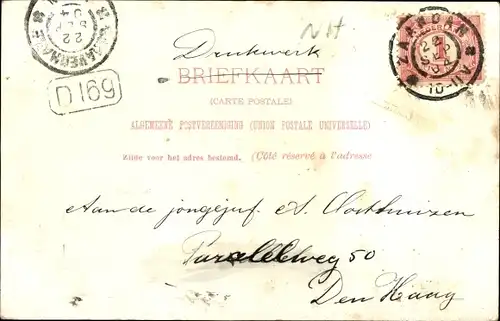 NH
's GRAVENHAGE
22
SEP
04
ZAANDAM
22
SEP
04
10-11
Drukwerk
D169
BRIEFKAART
(CARTE POSTALE)
ALGEMEENE POSTVEREENIGING (UNION POSTALE UNIVERSELLE)
Zijde voor het adres bestemd. (Côté réservé à l'adresse
Aan de jongejuf. A. Oosthuizen
Parallelweg 50
Den Haag